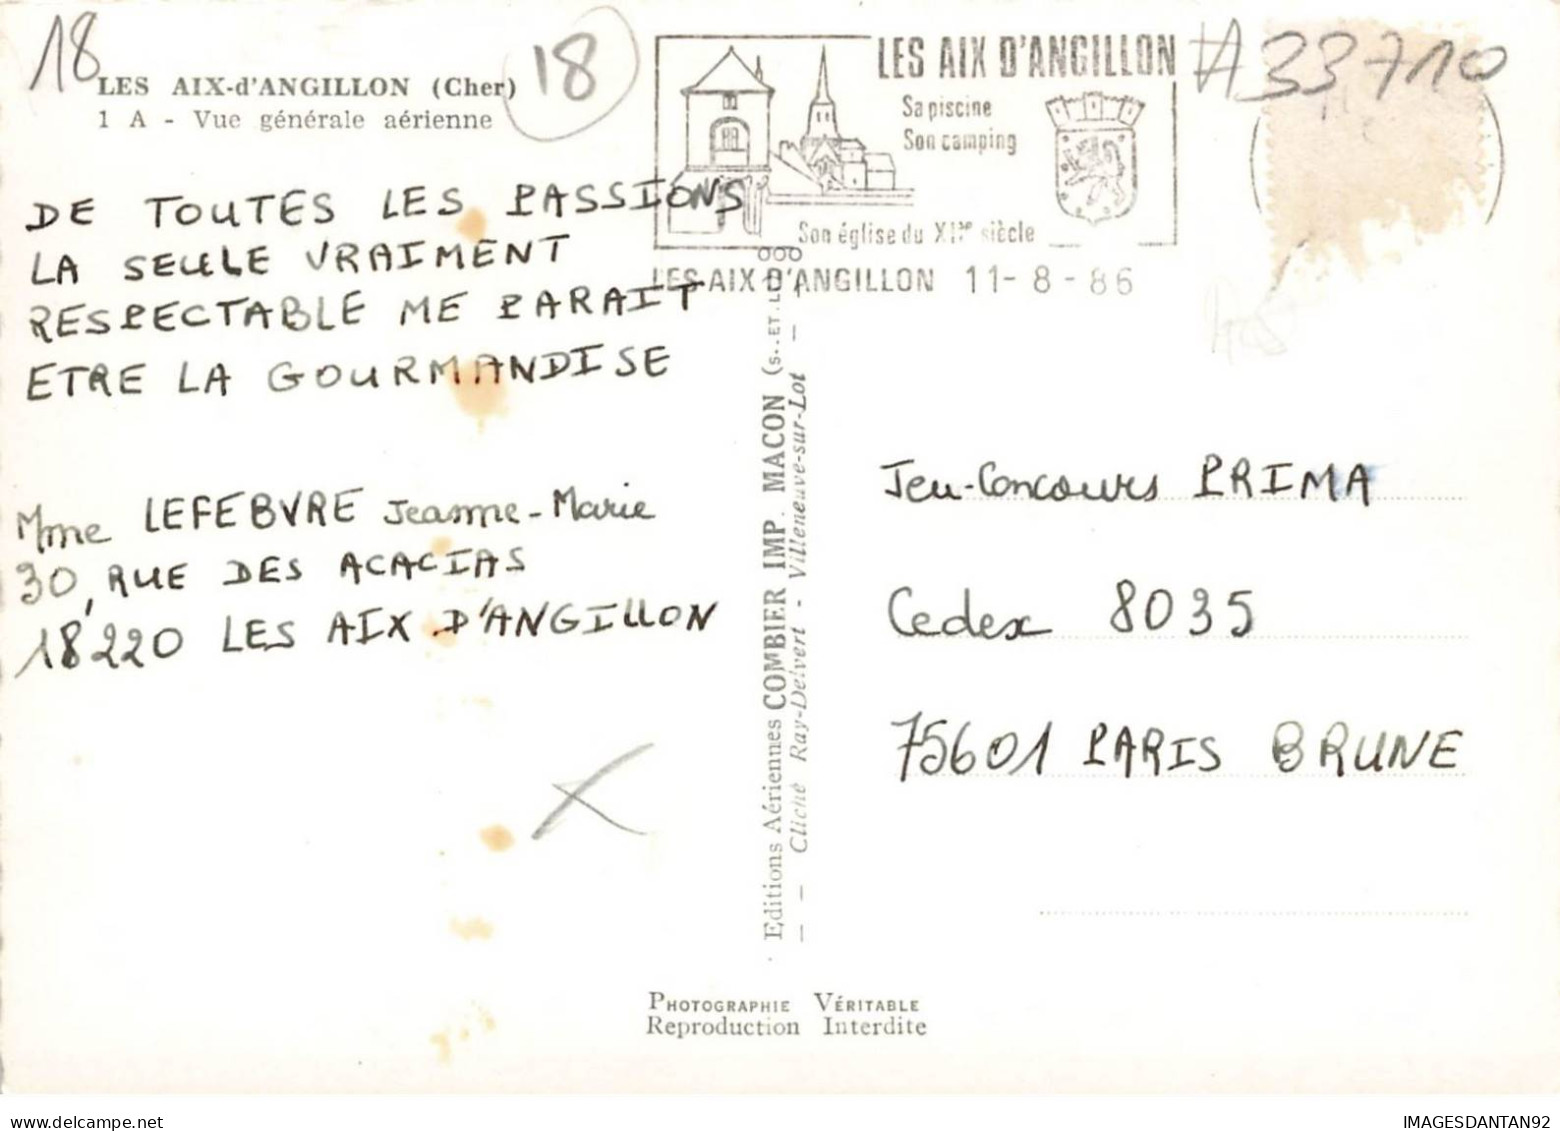 18
18
LES AIX-d'ANGILLON (Cher)
1 A - Vue générale aérienne
LES AIX D'ANGILLON
Sa piscine
Son camping
Son église du XIIe siècle
LES AIX D'ANGILLON 11-8-86
#33710
DE TOUTES LES PASSIONS
LA SEULE VRAIMENT
RESPECTABLE ME PARAIT
ETRE LA GOURMANDISE
Mme LEFEBVRE Jeanne-Marie
30, RUE DES ACACIAS
18220 LES AIX D'ANGILLON
Editions Aériennes COMBIER IMP. MACON (S.-ET-L.)
Cliché Ray-Delvert - Villeneuve-sur-Lot
Jeu-Concours PRIMA
Cedex 8035
75601 PARIS BRUNE
PHOTOGRAPHIE VÉRITABLE
Reproduction Interdite
www.delcampe.net
IMAGESDANTAN92